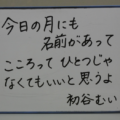 今日の月にも
名前があって
こころって ひとつじゃ
なくてもいいと思うよ
初谷むい